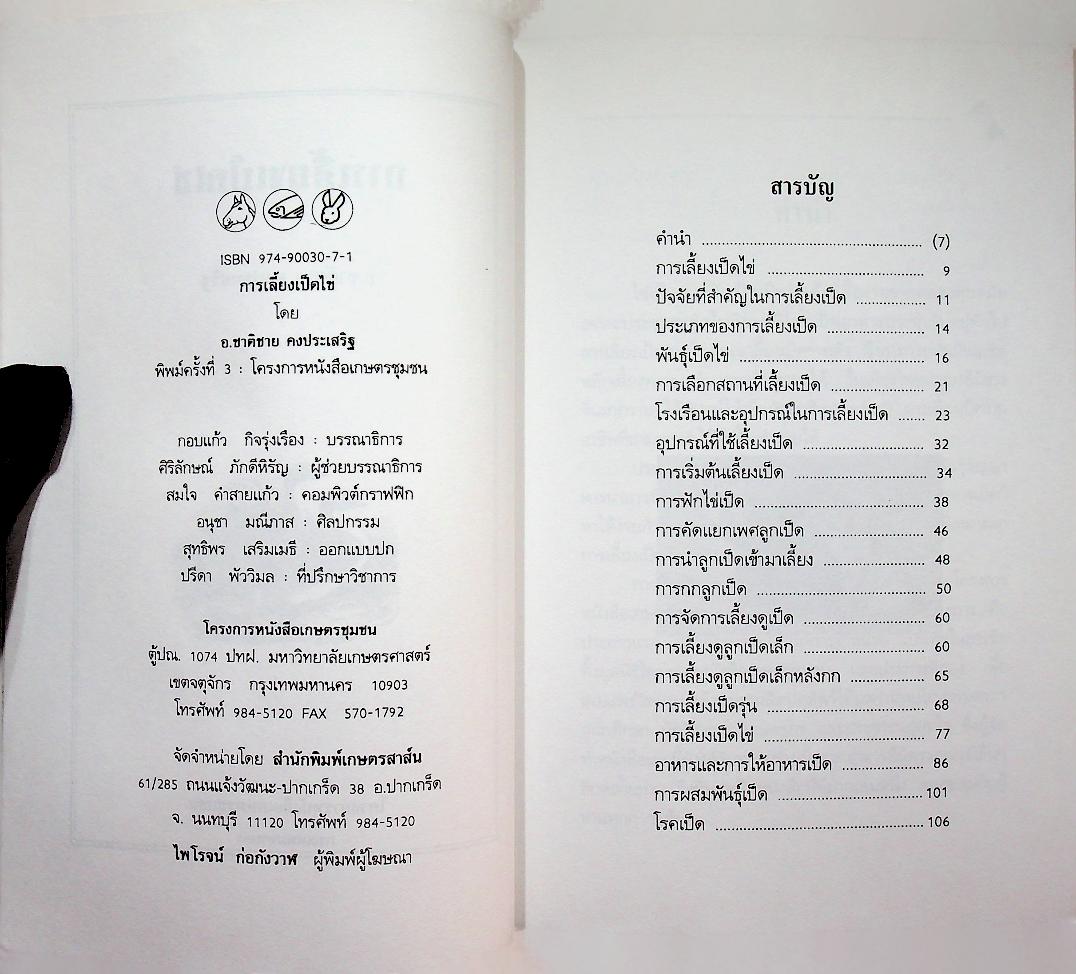 ISBN 974-90030-7-1
การเลี้ยงเป็ดไข่
โดย
อ.ชาติชาย คงประเสริฐ
พิมพ์ครั้งที่ 3 : โครงการหนังสือเกษตรชุมชน
กอบแก้ว กิจรุ่งเรือง : บรรณาธิการ
ศิริลักษณ์ ภักดีหิรัญ : ผู้ช่วยบรรณาธิการ
สมใจ คำสายแก้ว : คอมพิวต์กราฟฟิก
อนุชา มณีภาส : ศิลปกรรม
สุทธิพร เสริมเมธี : ออกแบบปก
ปรีดา พัววิมล : ที่ปรึกษาวิชาการ
โครงการหนังสือเกษตรชุมชน
ตู้ปณ. 1074 ปทฝ. มหาวิทยาลัยเกษตรศาสตร์
เขตจตุจักร กรุงเทพมหานคร 10903
โทรศัพท์ 984-5120 FAX 570-1792
จัดจำหน่ายโดย สำนักพิมพ์เกษตรสาส์น
61/285 ถนนแจ้งวัฒนะ-ปากเกร็ด 38 อ.ปากเกร็ด
จ. นนทบุรี 11120 โทรศัพท์ 984-5120
ไพโรจน์ ก่อกังวาฬ ผู้พิมพ์ผู้โฆษณา
สารบัญ
คำนำ ........................................ (7)
การเลี้ยงเป็ดไข่ ........................................ 9
ปัจจัยที่สำคัญในการเลี้ยงเป็ด ................. 11
ประเภทของการเลี้ยงเป็ด ........................ 14
พันธุ์เป็ดไข่ ........................................ 16
การเลือกสถานที่เลี้ยงเป็ด ........................ 21
โรงเรือนและอุปกรณ์ในการเลี้ยงเป็ด ....... 23
อุปกรณ์ที่ใช้เลี้ยงเป็ด ............................. 32
การเริ่มต้นเลี้ยงเป็ด ................................ 34
การฟักไข่เป็ด ........................................ 38
การคัดแยกเพศลูกเป็ด ........................... 46
การนำลูกเป็ดเข้ามาเลี้ยง ........................ 48
การกกลูกเป็ด ........................................ 50
การจัดการเลี้ยงดูเป็ด ............................. 60
การเลี้ยงดูลูกเป็ดเล็ก ............................. 60
การเลี้ยงดูลูกเป็ดเล็กหลังกก .................. 65
การเลี้ยงเป็ดรุ่น ..................................... 68
การเลี้ยงเป็ดไข่ ..................................... 77
อาหารและการให้อาหารเป็ด ................... 86
การผสมพันธุ์เป็ด ...................................101
โรคเป็ด .................................................. 106